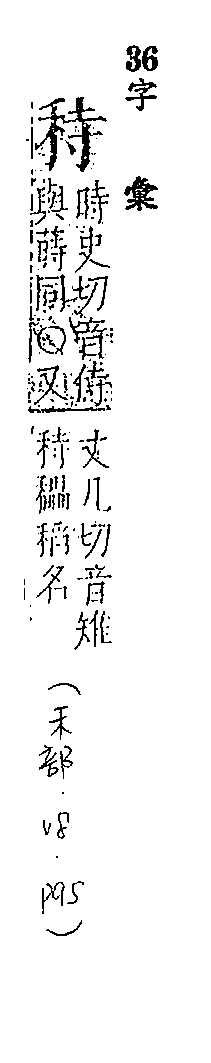 36字彙
秲
時史切音侍
與蒔同〇又
丈几切音雉
秲稻名
(禾部.v8.p95)